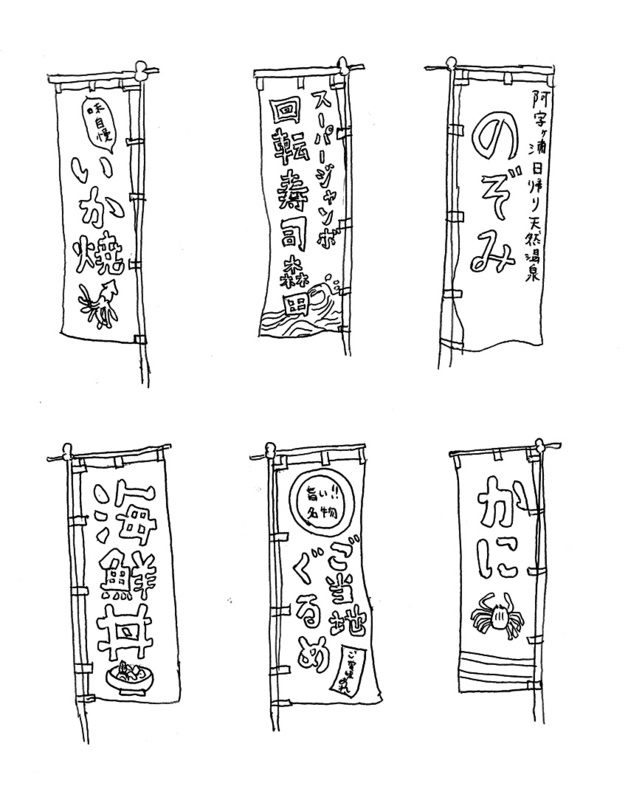 味自慢
いか焼
スーパージャンボ
回転寿司森田
阿字ヶ浦日帰り天然温泉
のぞみ
海鮮丼
旨い!!
名物
ご当地
ぐるめ
かに